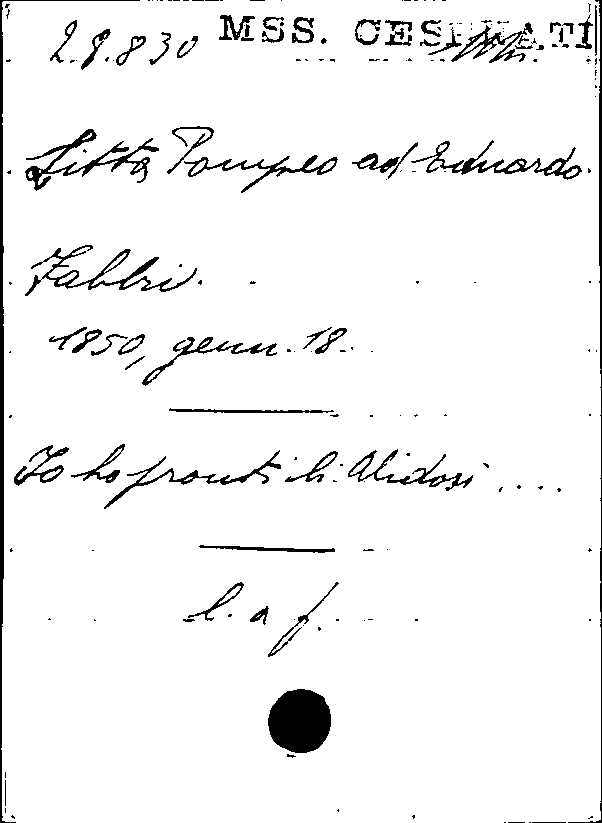 2.8.830 MSS. CESENATI
Litta Pompeo ad Eduardo
Fabbri.
1850, genn. 18
Io ho pronti li Alidosi ....
l. a f.